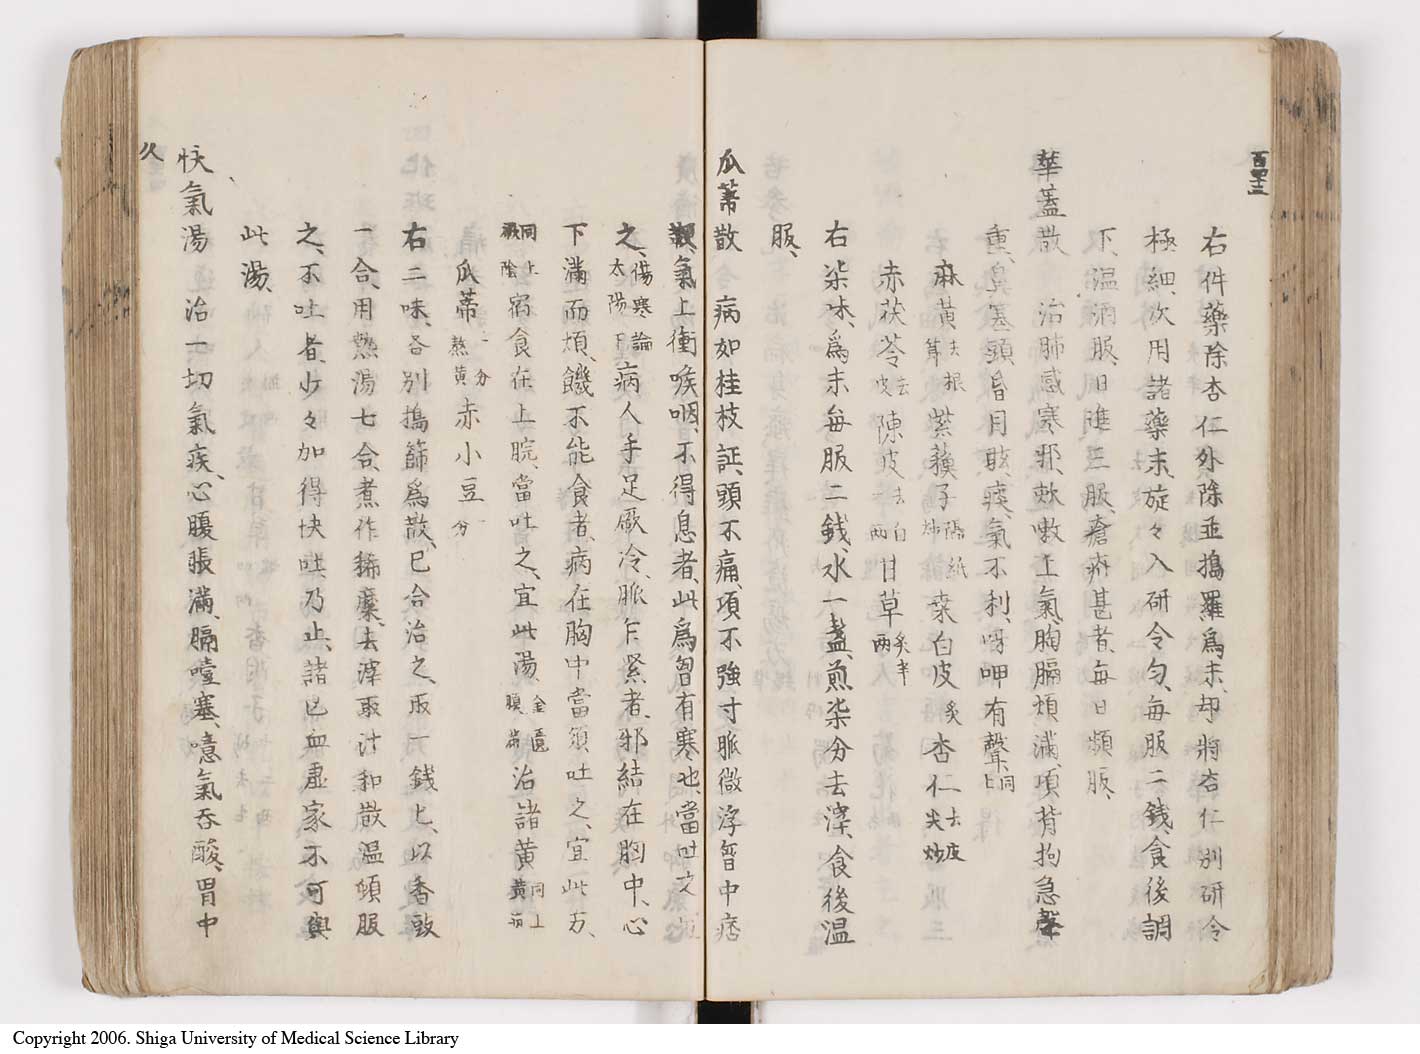 百四十三
右件藥除杏仁外除並搗羅爲末、却將杏仁別研令
極細、次用諸藥末、旋々入研令匀、毎服二錢、食後調
下、温酒服、日進三服、瘡疥甚者、毎日頻服、
華蓋散 治肺感寒邪、欬嗽上氣、胸膈煩滿、項背拘急、聲
重鼻塞、頭昏目眩、痰氣不利、呀呷有聲、同上
麻黄去根節 紫蘇子隔紙炒 桒白皮炙 杏仁去皮尖炒
赤茯苓去皮 陳皮去白 甘草炙半兩
右柒味、爲末毎服二錢、水一盞、煎柒分去滓、食後温
服、
瓜蒂散 病如桂枝証、頭不痛、項不強寸脈微浮、胷中痞
鞕、氣上衝喉咽、不得息者、此爲胷有寒也、當吐之
之、傷寒論太陽下 病人手足厥冷、脈乍緊者、邪結在胸中、心
下滿而煩、饑不能食者、病在胸中當須吐之、宜此方、
同上厥陰 宿食在上脘、當吐之、宜此湯、金匱腹滿 治諸黄、同上黄疸
瓜蒂一分熬黄 赤小豆一分
右二味、各別搗篩爲散、已合治之、取一錢匕、以香豉
一合、用熱湯七合、煮作稀糜、去滓取汁和散温頓服
之、不吐者、少々加得快吐乃止、諸亡血虚家不可與
此湯、
快氣湯 治一切氣疾、心腹脹滿、膈噎塞、噫氣吞酸、胃中
久
Copyright 2006. Shiga University of Medical Science Library